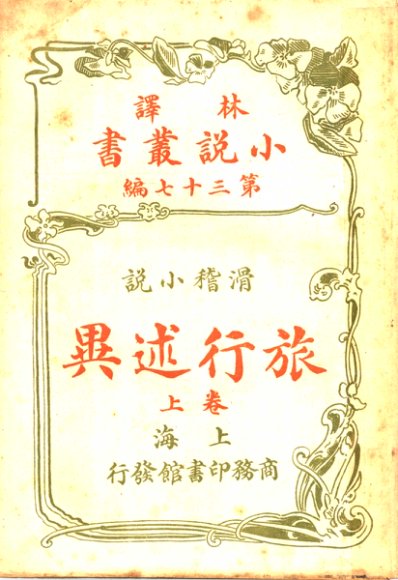 林譯
小説叢書
第三十七編
滑稽小説
旅行述異
卷上
上海
商務印書館發行